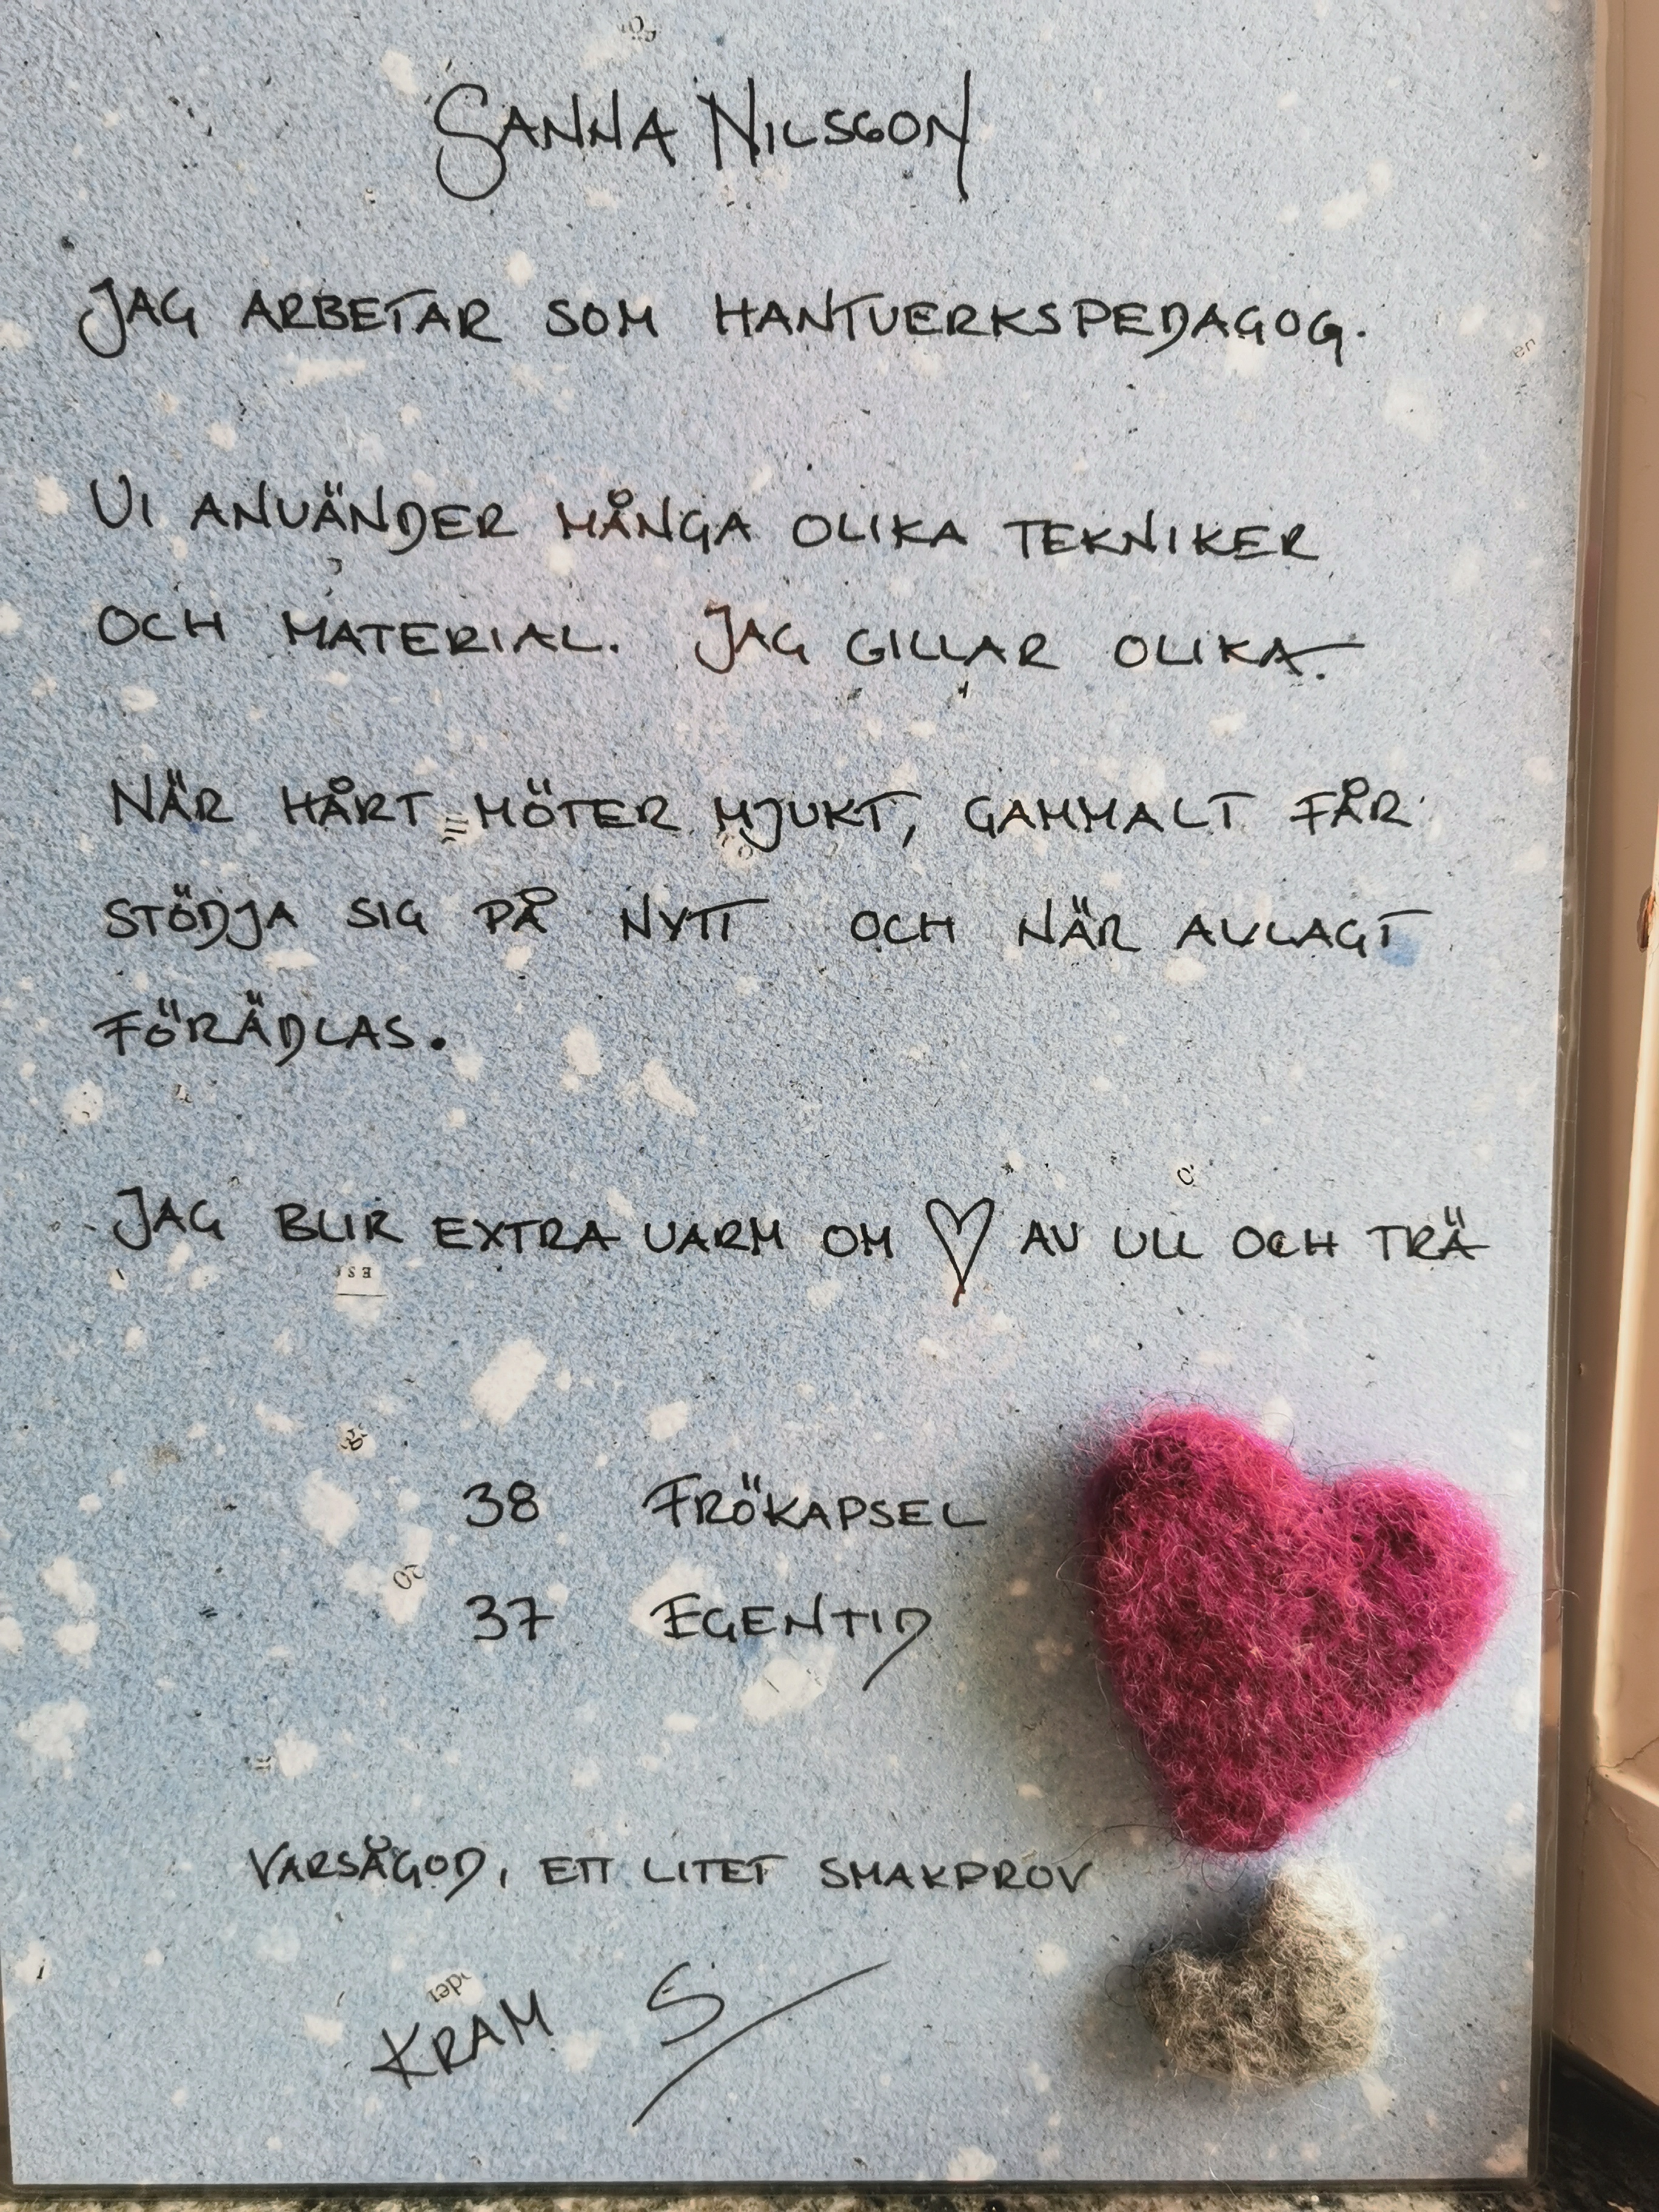 SANNA NILSSON
JAG ARBETAR SOM HANTVERKSPEDAGOG.
VI ANVÄNDER MÅNGA OLIKA TEKNIKER
OCH MATERIAL. JAG GILLAR OLIKA.
NÄR HÅRT MÖTER MJUKT, GAMMALT FÅR
STÖDJA SIG PÅ NYTT OCH NÄR AVLAGT
FÖRÄDLAS.
JAG BLIR EXTRA VARM OM ♡ AV ULL OCH TRÄ
38 FRÖKAPSEL
37 EGENTID
VARSÅGOD, ETT LITET SMAKPROV
KRAM S